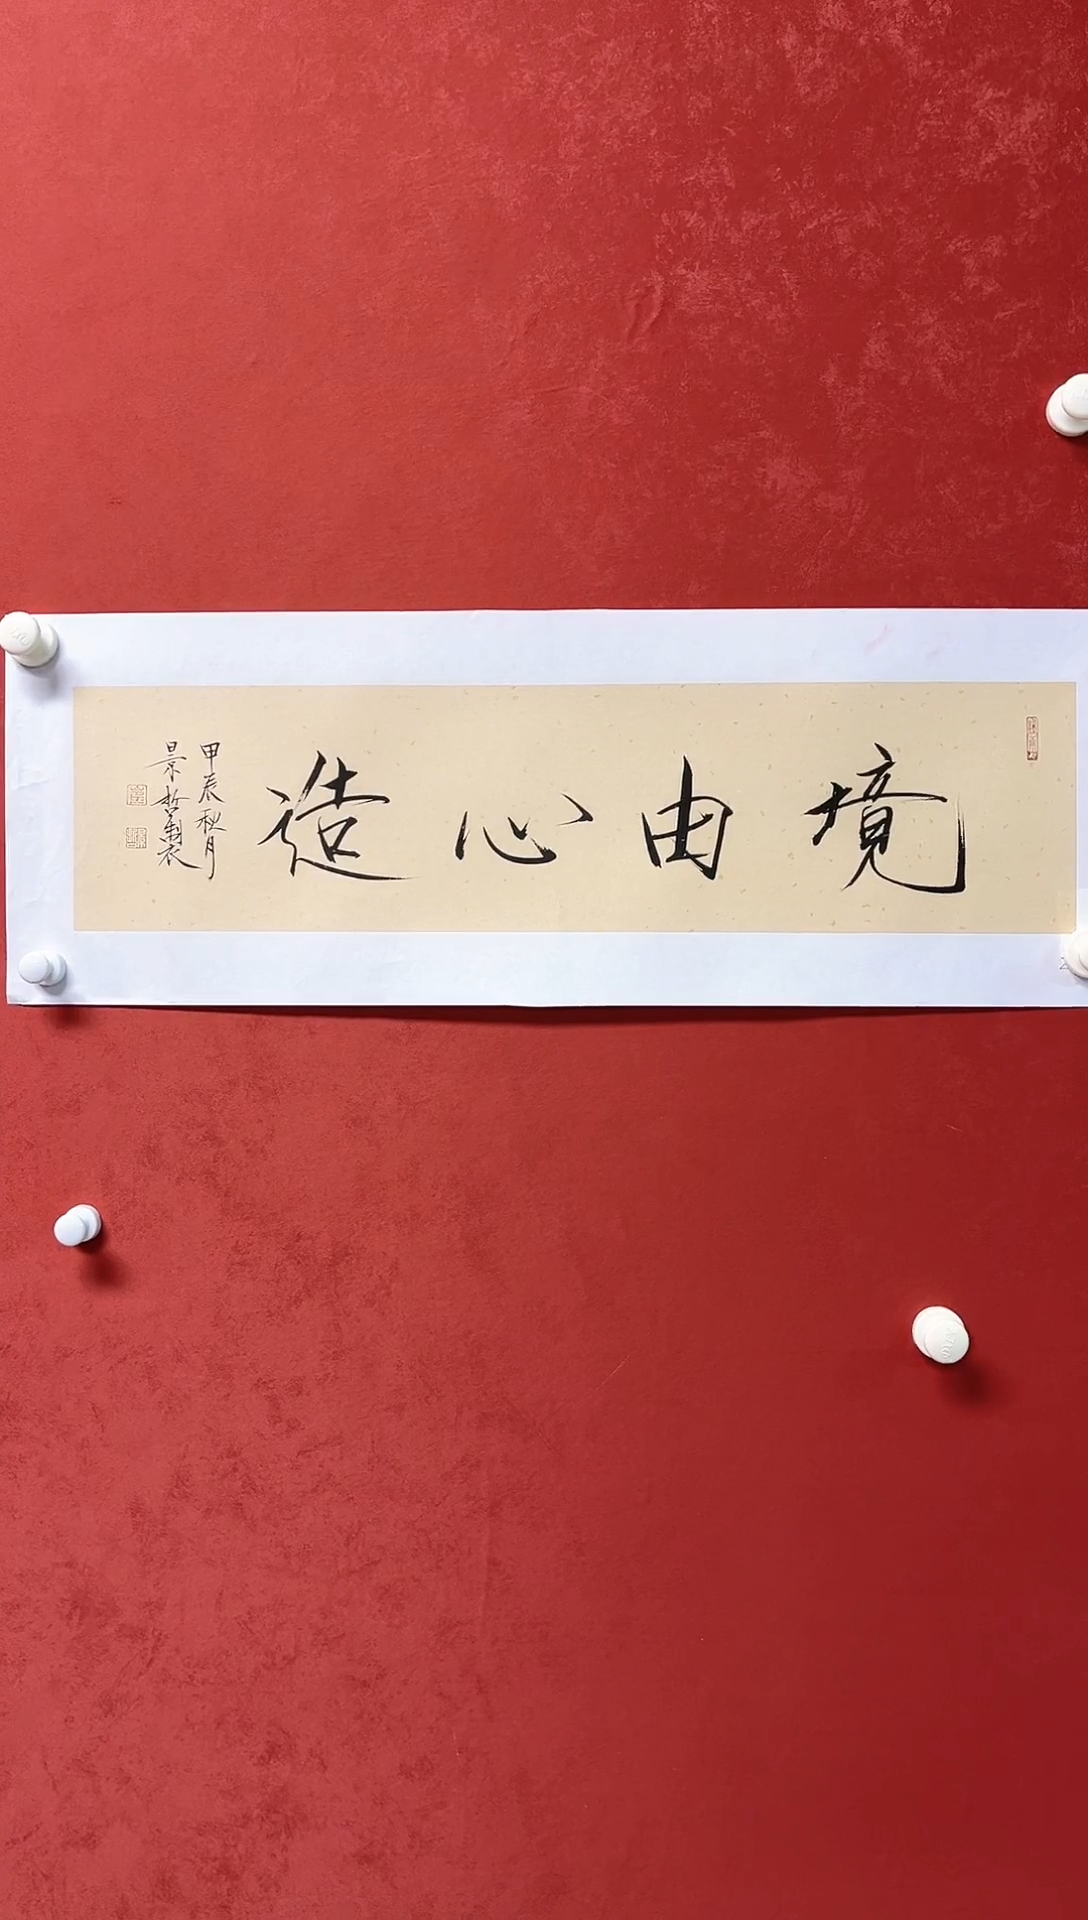 境由心造
甲辰秋月
景哲製